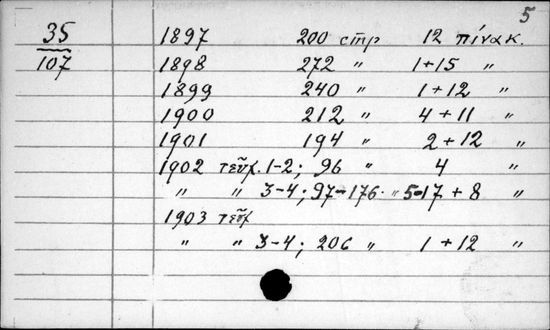 5
35 1897 200 стр 12 πίνακ.
107 1898 272 " 1+15 "
1899 240 " 1+12 "
1900 212 " 4+11 "
1901 194 " 2+12 "
1902 τεῦχ. 1-2; 96 " 4 "
" " 3-4; 97-176 " 5-17+8 "
1903 τεῦχ
" " 3-4; 206 " 1+12 "